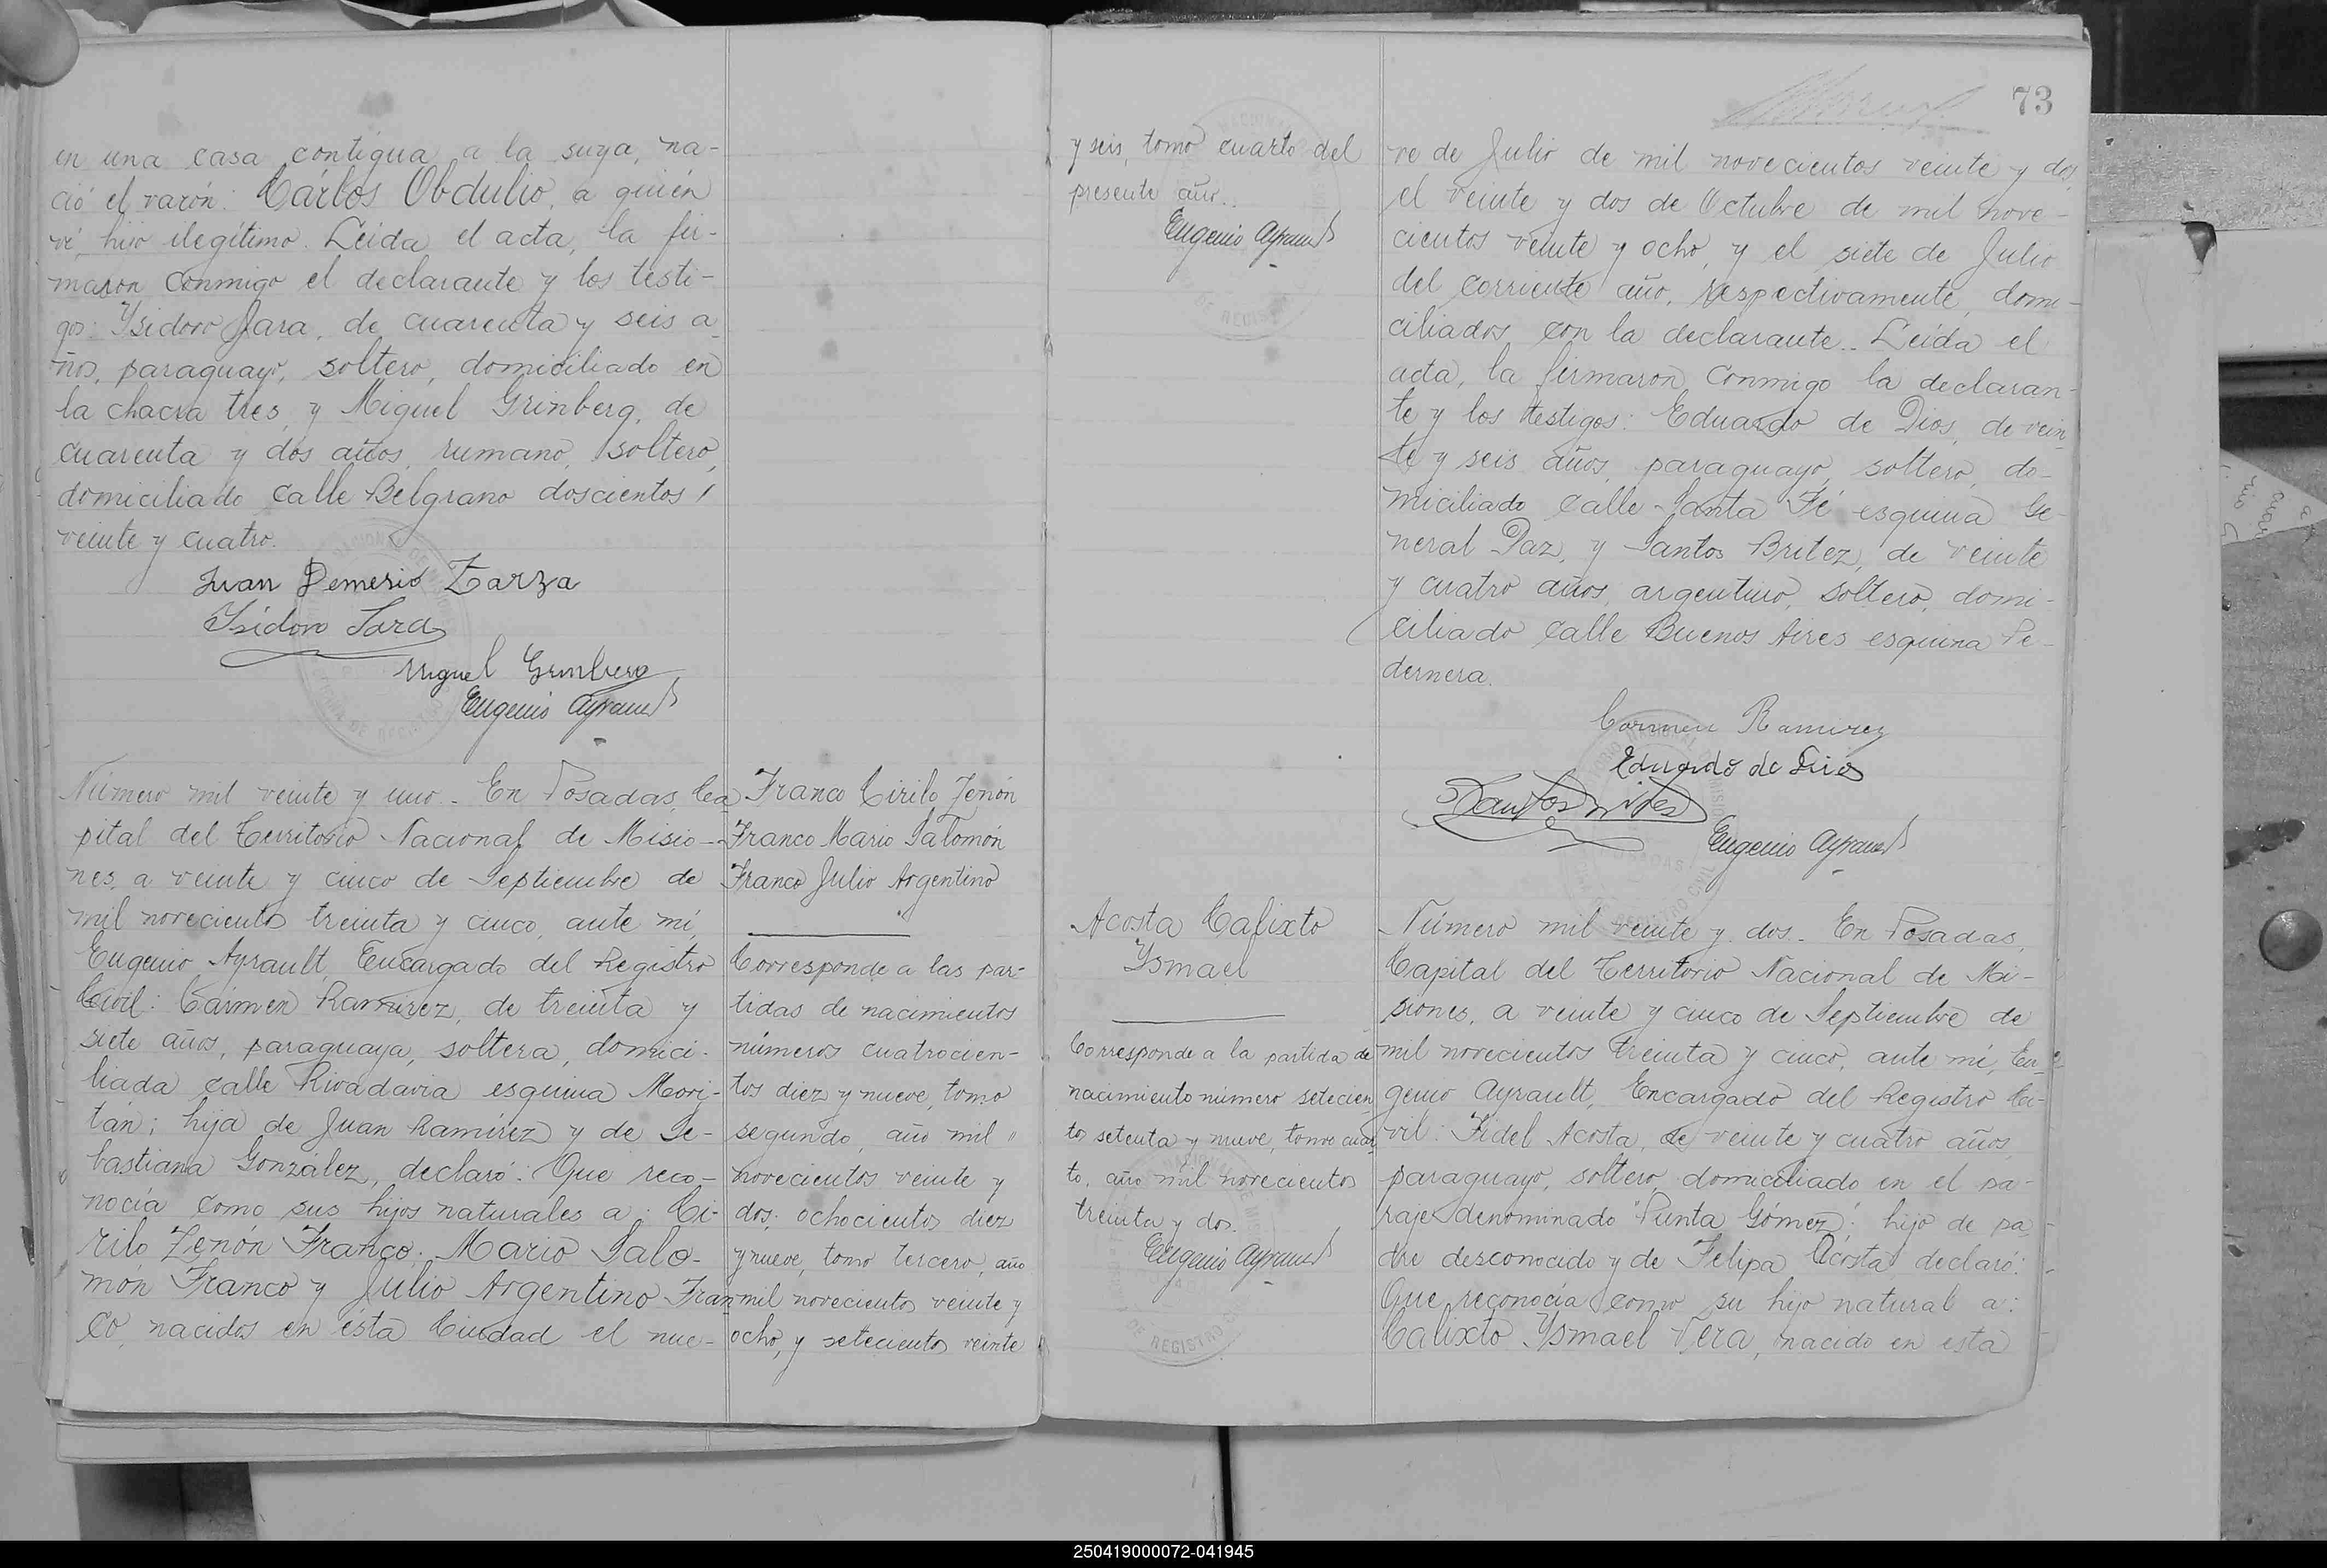 en una casa contigua a la suya, na-
ció el varón: Cárlos Obdulio, a quién
ví, hijo ilegítimo. Leida el acta, la fir-
maron conmigo el declarante y los testi-
gos: Ysidoro Jara, de cuarenta y seis a-
ños, paraguayo, soltero, domiciliado en
la chacra tres, y Miguel Grinberg, de
cuarenta y dos años, rumano, soltero,
domiciliado calle Belgrano doscientos
veinte y cuatro.
Juan Demesio Zarza
Isidoro Jara
Miguel Grinberg
Eugenio Ayrault
Número mil veinte y uno. En Posadas, Ca
pital del Territorio Nacional de Misio-
nes, a veinte y cinco de Septiembre de
mil novecientos treinta y cinco, ante mí,
Eugenio Ayrault, Encargado del Registro
Civil: Cármen Ramírez, de treinta y
siete años, paraguaya, soltera, domici-
liada calle Rivadavia esquina Mori-
tán; hija de Juan Ramírez y de Se-
bastiana González, declaró: Que reco-
nocía como sus hijos naturales a: Ci-
rilo Zenón Franco; Mario Salo-
món Franco y Julio Argentino Fran
co, nacidos en ésta Ciudad el nue-
Franco Cirilo Zenón
Franco Mario Salomón
Franco Julio Argentino
Corresponde a las par-
tidas de nacimientos
números cuatrocien-
tos diez y nueve, tomo
segundo, año mil
novecientos veinte y
dos; ochocientos diez
y nueve, tomo tercero, año
mil novecientos veinte y
ocho, y setecientos veinte
y seis, tomo cuarto del
presente año.
Eugenio Ayrault
73
ve de Julio de mil novecientos veinte y dos,
el veinte y dos de Octubre de mil nove-
cientos veinte y ocho, y el siete de Julio
del corriente año, respectivamente, domi-
ciliados con la declarante. Leída el
acta, la firmaron conmigo la declaran-
te y los testigos: Eduardo de Dios, de vein
te y seis años, paraguayo, soltero, do-
miciliado calle Santa Fé esquina Ge-
neral Paz, y Santos Britez, de veinte
y cuatro años, argentino, soltero, domi-
ciliado calle Buenos Aires esquina Pe-
dernera.
Carmen Ramirez
Eduardo de Dios
Eugenio Ayrault
Acosta Calixto
Ysmael
Corresponde a la partida de
nacimiento número setecien
tos setenta y nueve, tomo cuar
to, año mil novecientos
treinta y dos.
Eugenio Ayrault
Número mil veinte y dos. En Posadas,
Capital del Territorio Nacional de Mi-
siones, a veinte y cinco de Septiembre de
mil novecientos treinta y cinco, ante mí, Eu-
genio Ayrault, Encargado del Registro Ci-
vil: Fidel Acosta, de veinte y cuatro años,
paraguayo, soltero, domiciliado en el pa-
raje denominado "Punta Gómez"; hijo de pa-
dre desconocido y de Felipa Acosta, declaró:
Que reconocía como su hijo natural a:
Calixto Ysmael Vera, nacido en esta
250419000072-041945